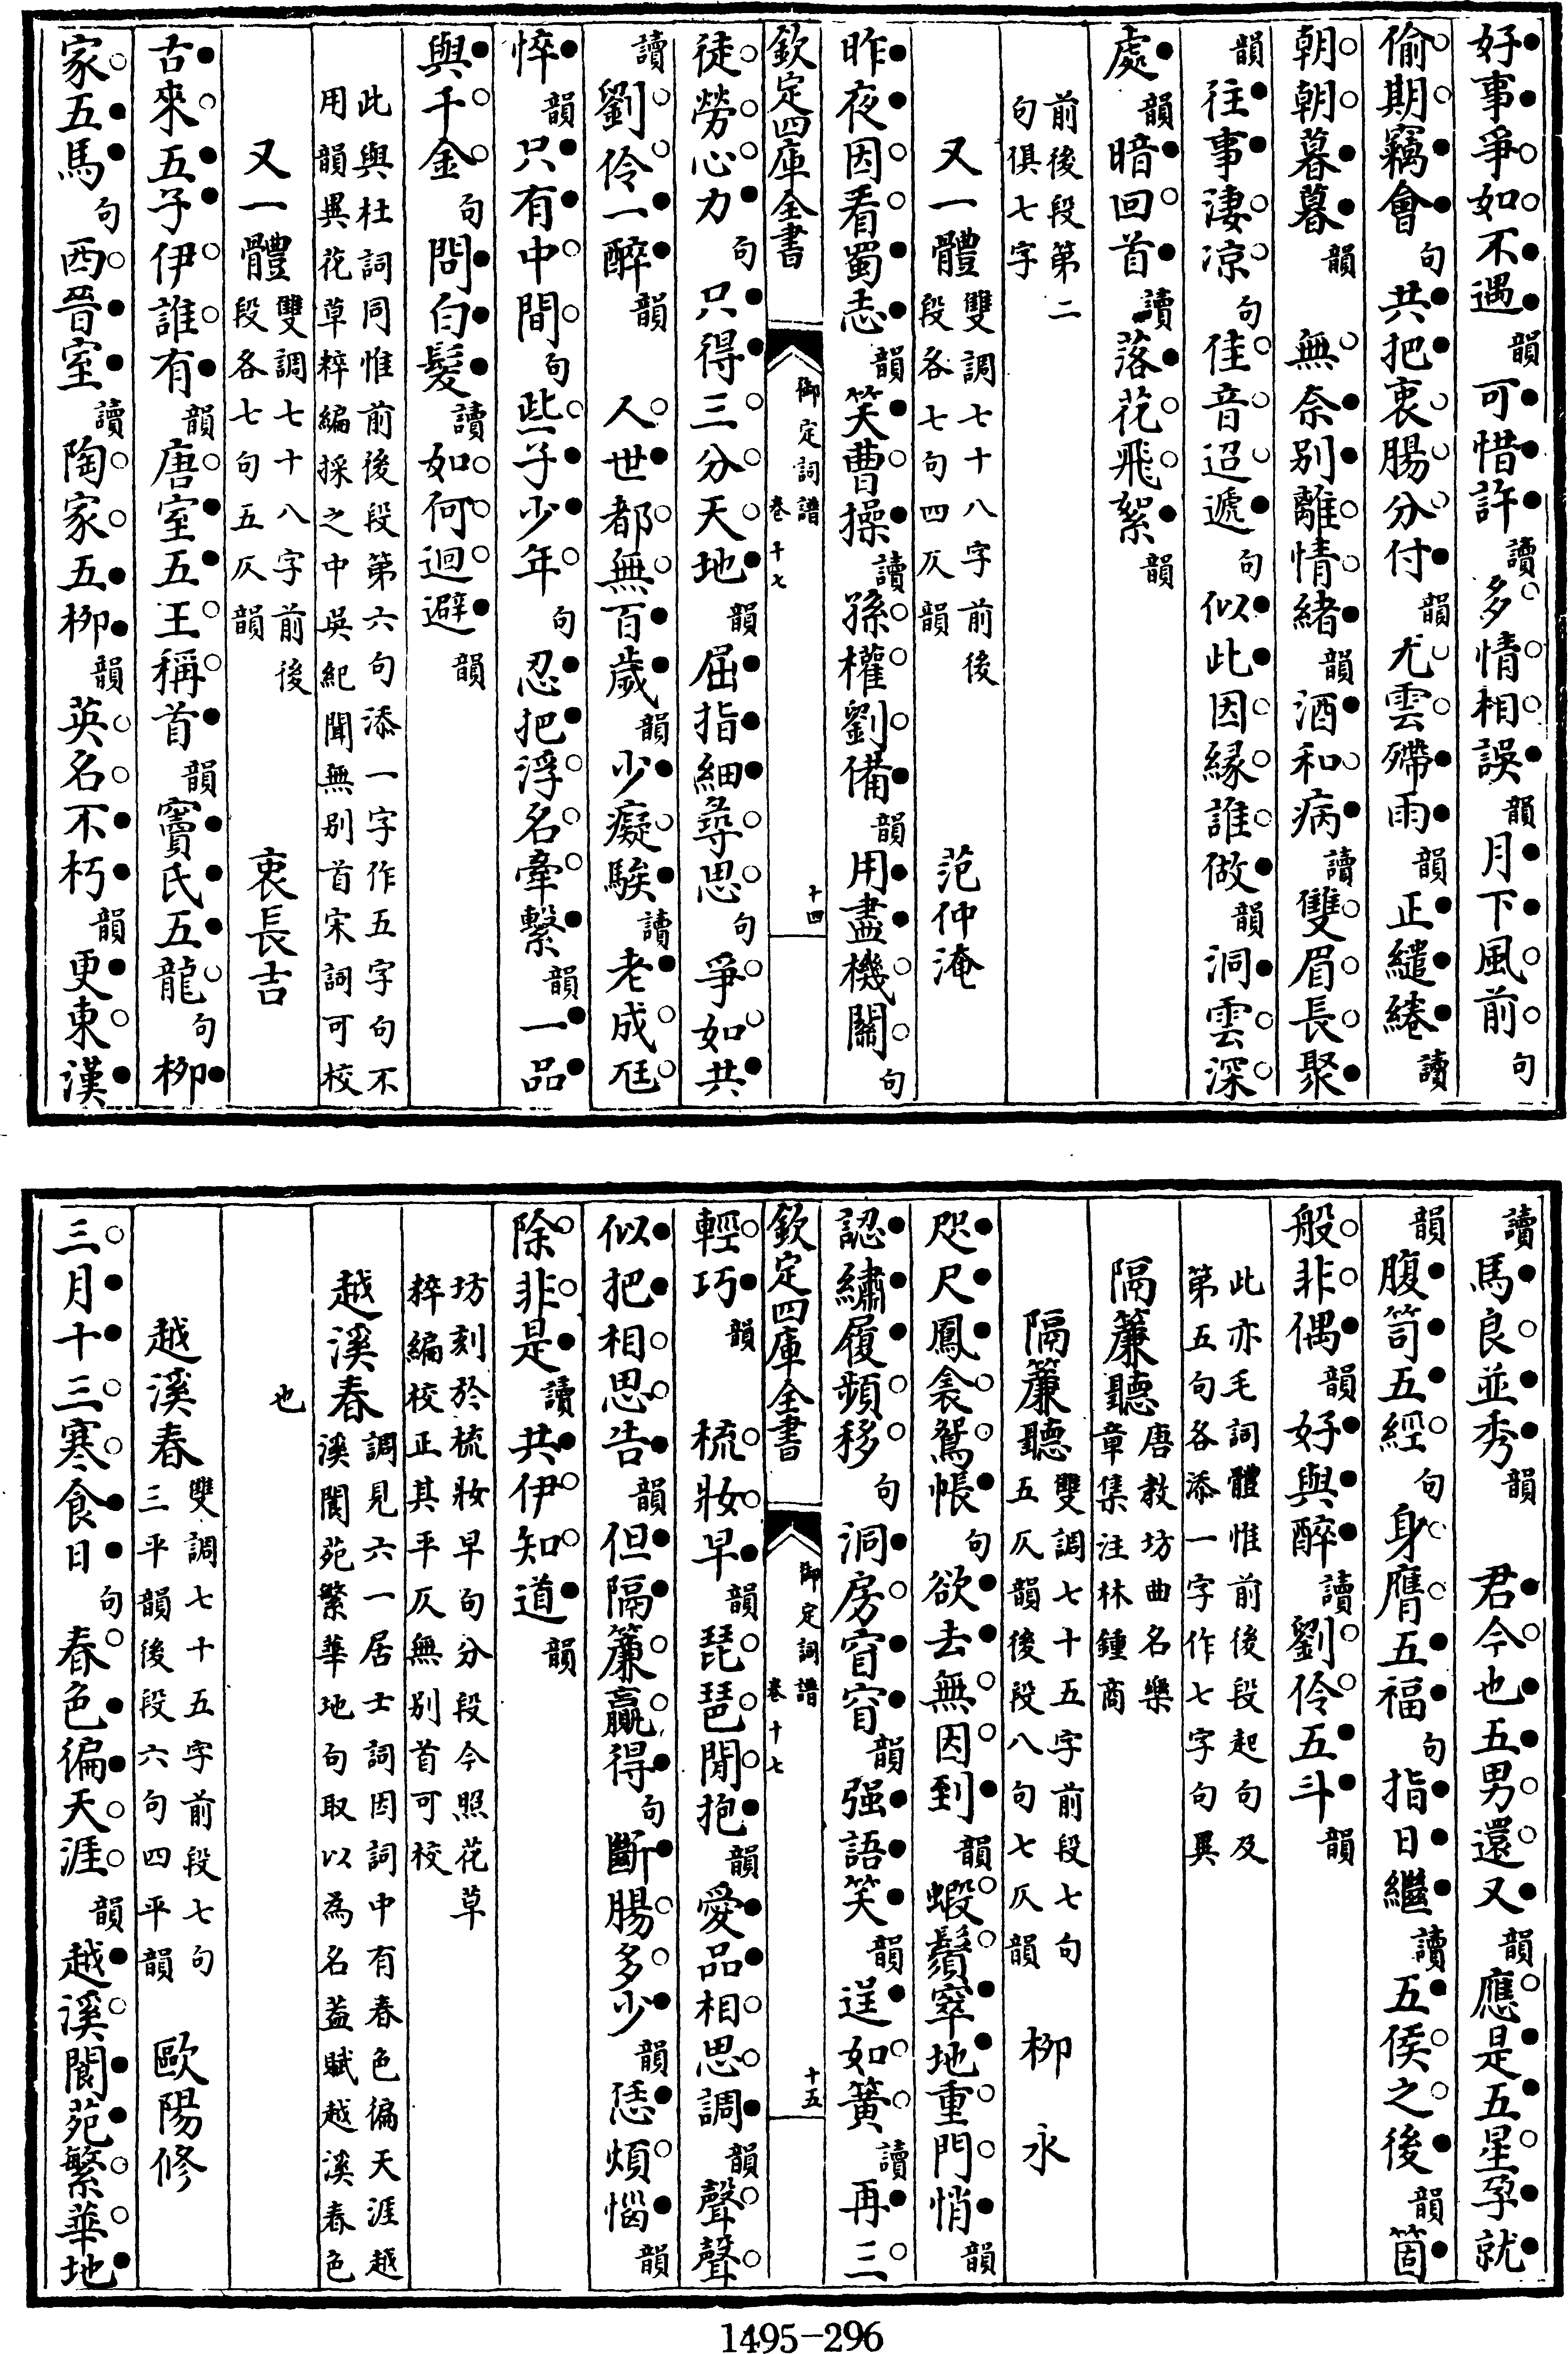 好事爭如不遇韻可惜許讀多情相誤韻月下風前句
偷期竊會句共把衷腸分付韻尤雲殢雨韻正繾綣讀
朝朝暮暮韻　無奈別離情緒韻酒和病讀雙眉長聚
韻往事淒涼句佳音迢遞句似此因緣誰做韻洞雲深
處韻暗回首讀落花飛絮韻
前後段第二
句俱七字
又一體雙調七十八字前後
段各七句四仄韻　范仲淹
昨夜因看蜀志韻笑曹操讀孫權劉備韻用盡機關句
欽定四庫全書　御定詞譜卷十七　十四
徒勞心力句只得三分天地韻屈指細尋思句爭如共
讀劉伶一醉韻　人世都無百歲韻少癡騃讀老成尫
悴韻只有中間句些子少年句忍把浮名牽繫韻一品
與千金句問白髮讀如何迴避韻
此與杜詞同惟前後段第六句添一字作五字句不
用韻異花草粹編採之中吳紀聞無別首宋詞可校
又一體雙調七十八字前後
段各七句五仄韻　衷長吉
古來五子伊誰有韻唐室五王稱首韻竇氏五龍句柳
家五馬句西晉室讀陶家五柳韻英名不朽韻更東漢
讀馬良並秀韻　君今也五男還又韻應是五星孕就
韻腹笥五經句身膺五福句指日繼讀五侯之後韻箇
般非偶韻好與醉讀劉伶五斗韻
此亦毛詞體惟前後段起句及
第五句各添一字作七字句異
隔簾聽唐教坊曲名樂
章集注林鍾商
隔簾聽雙調七十五字前段七句
五仄韻後段八句七仄韻　柳永
咫尺鳳衾鴛帳句欲去無因到韻蝦鬚窣地重門悄韻
認繡履頻移句洞房窅窅韻强語笑韻逞如簧讀再三
欽定四庫全書　御定詞譜卷十七　十五
輕巧韻　梳妝早韻琵琶閒抱韻愛品相思調韻聲聲
似把相思告韻但隔簾贏得句斷腸多少韻恁煩惱韻
除非是讀共伊知道韻
坊刻於梳妝早句分段今照花草
粹編校正其平仄無別首可校
越溪春調見六一居士詞因詞中有春色徧天涯越
溪閬苑繁華地句取以為名蓋賦越溪春色
也
越溪春雙調七十五字前段七句
三平韻後段六句四平韻　歐陽修
三月十三寒食日句春色徧天涯韻越溪閬苑繁華地
1495-296